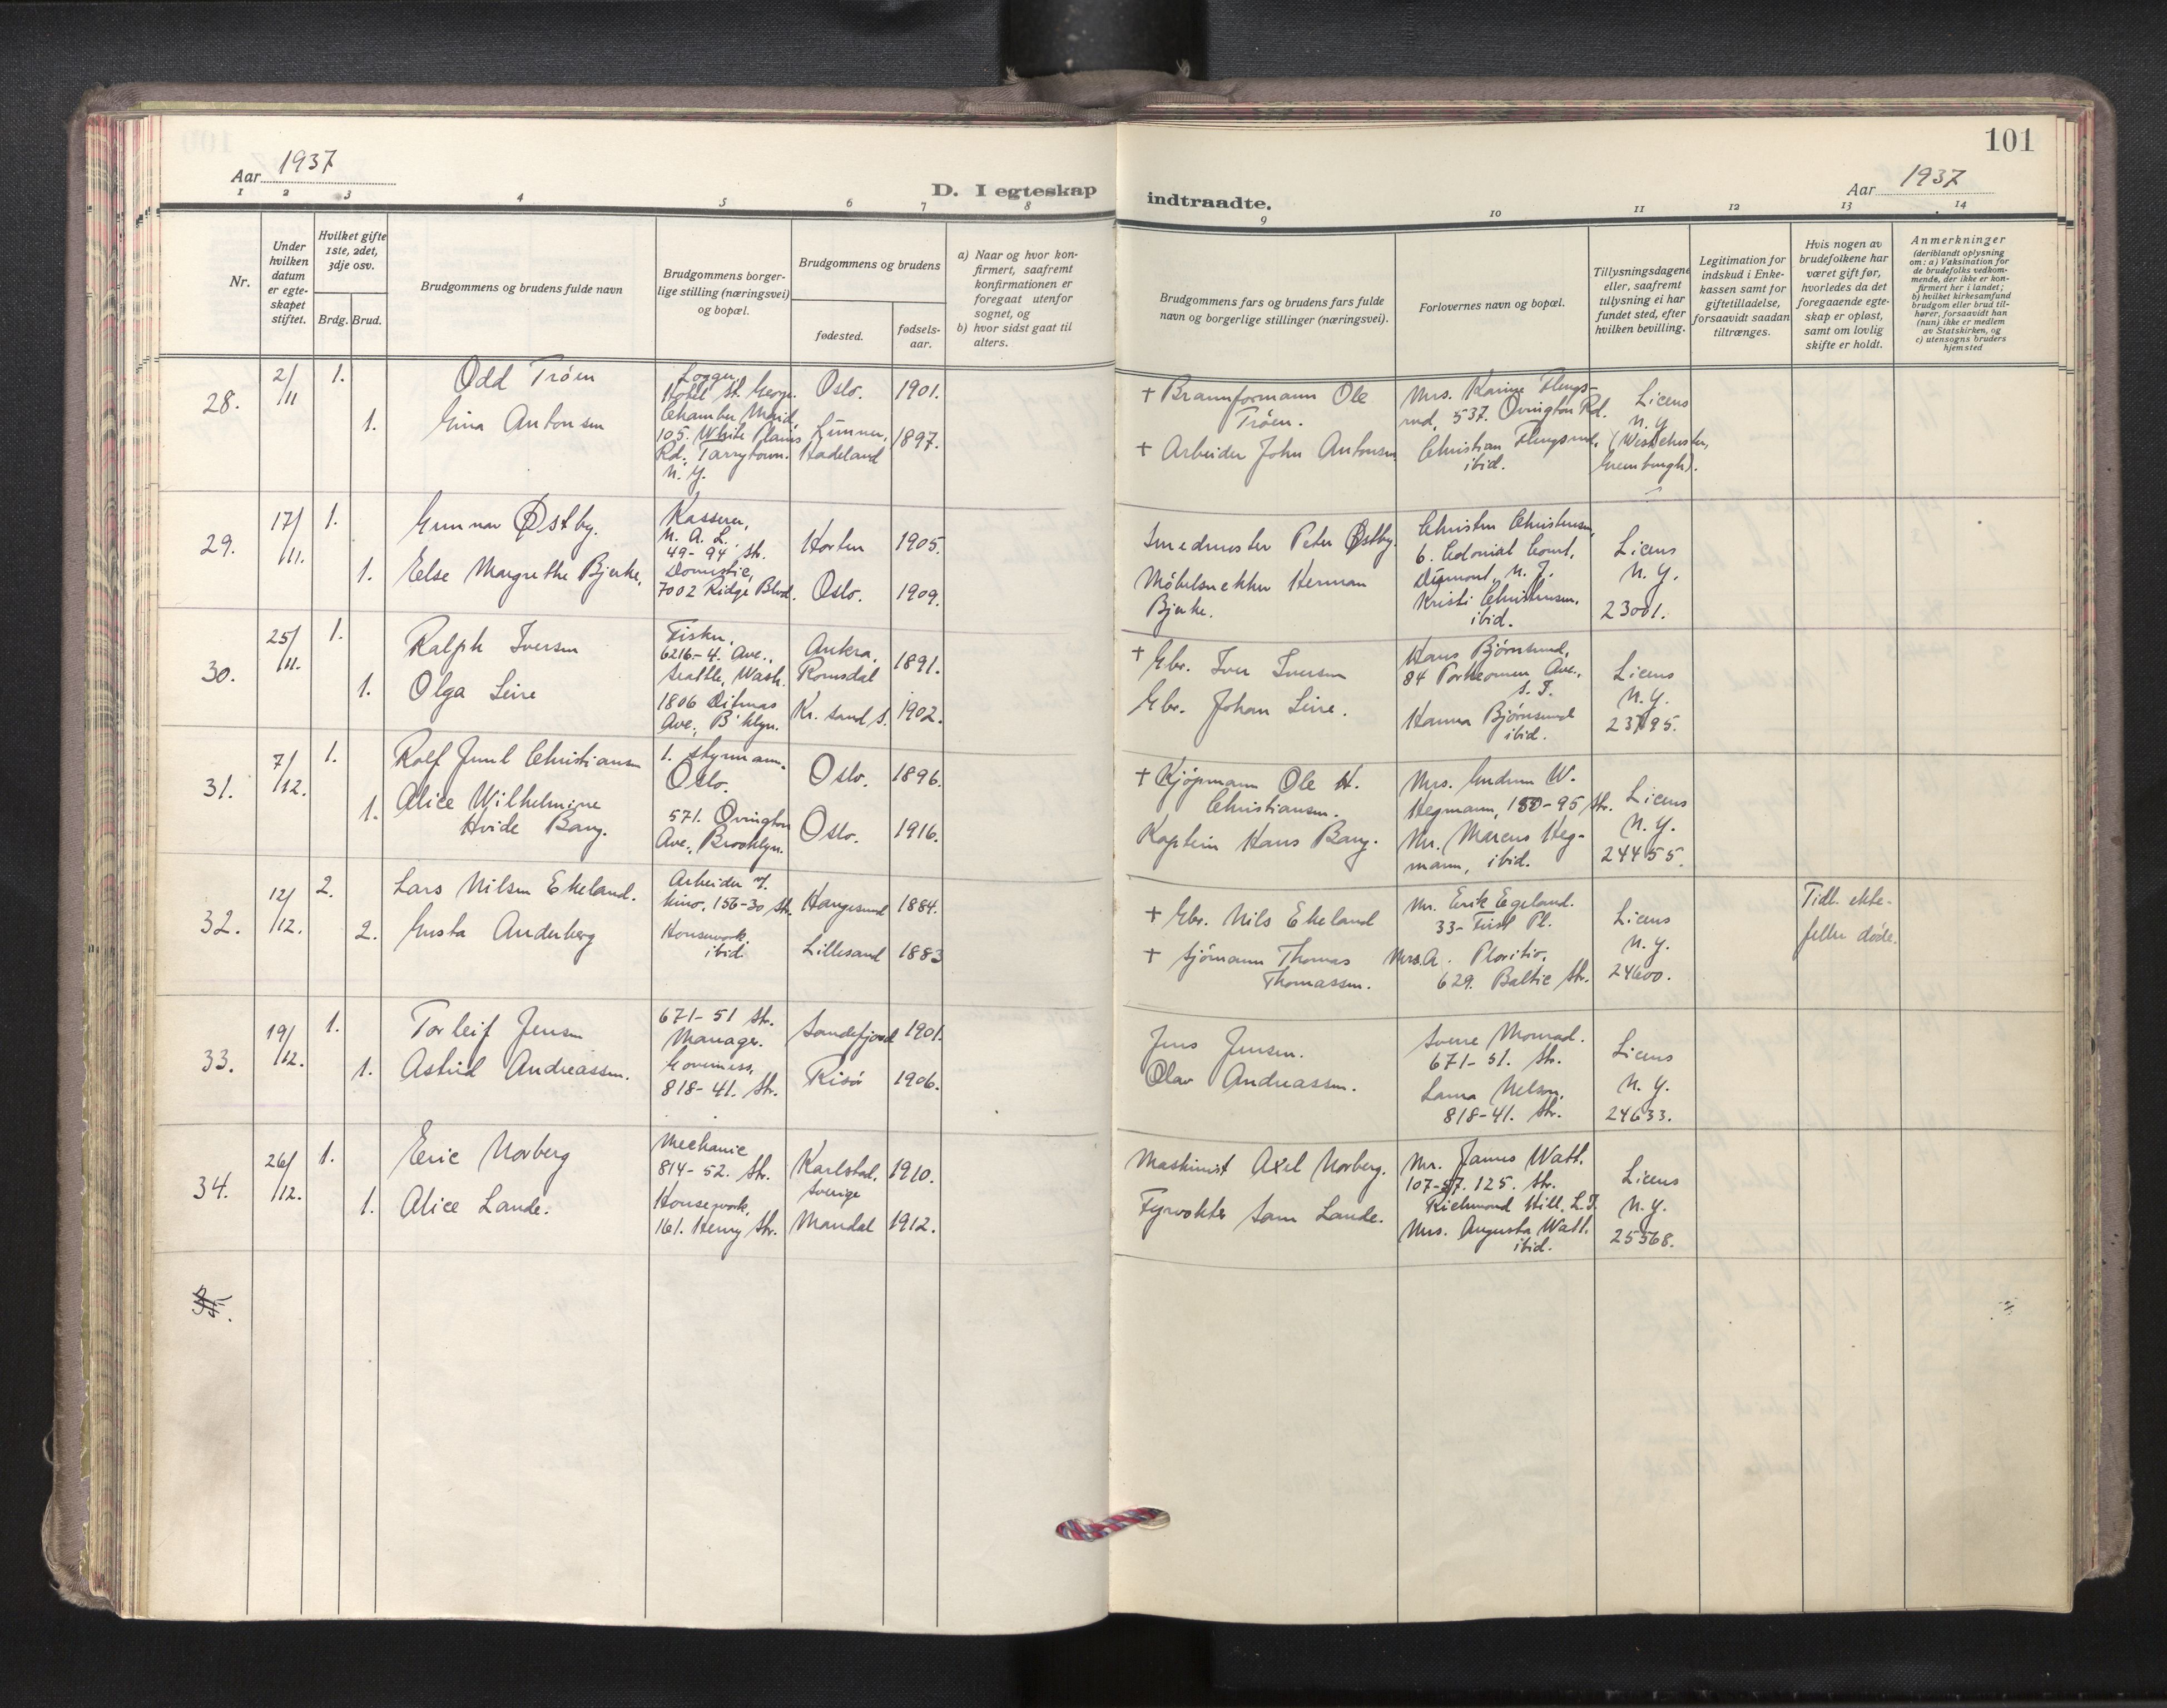 101
Aar 1937
D. I egteskap indtraadte.
Aar 1937
1 2 3 4 5 6 7 8 9 10 11 12 13 14
Nr.
Under hvilken datum er egteskapet stiftet.
Hvilket gifte 1ste, 2det, 3dje osv.
Brdg. Brud.
Brudgommens og brudens fulde navn
Brudgommens borgerlige stilling (næringsvei) og bopæl.
Brudgommens og brudens
fødested.
fødselsaar.
a) Naar og hvor konfirmert, saafremt konfirmationen er foregaat utenfor sognet, og
b) hvor sidst gaat til alters.
Brudgommens fars og brudens fars fulde navn og borgerlige stillinger (næringsvei).
Forlovernes navn og bopæl.
Tillysningsdagene eller, saafremt tillysning ei har fundet sted, efter hvilken bevilling.
Legitimation for indskud i Enkekassen samt for giftetilladelse, forsaavidt saadan tiltrænges.
Hvis nogen av brudefolkene har været gift før, hvorledes da det foregaaende egteskap er opløst, samt om lovlig skifte er holdt.
Anmerkninger
(deriblandt oplysning om: a) Vaksination for de brudefolks vedkommende, der ikke er konfirmert her i landet; b) hvilket kirkesamfund brudgom eller brud tilhører, forsaavidt han (hun) ikke er medlem av Statskirken, og c) utensogns bruders hjemsted
28.
2/11
1.
Odd Trøen
Logger,
Hotel St. George.
Oslo.
1901.
1.
Gina Antonsen
Chamber Maid,
105. White Plains
Rd., Tarrytown.
N. Y.
Gunner,
Hadeland
1897.
+ Brannformann Ole
Trøen.
+ Arbeider John Antonsen
Mrs. Karine Flengs-
rud, 537. Ovington Rd.
Christian Flengsrud,
ibid.
Licens
N. Y.
(Westchester,
29.
17/11.
1.
Gunnar Østby.
Kasserer,
N. A. L.
49-94 Str.
Horten
1905.
1.
Else Margrethe Bjerke,
Domestic,
7002 Ridge Blvd.
Oslo.
1909.
Smedmester Peter Østby.
Møbelsnekker Herman
Bjerke.
Christen Christensen,
6. Colonial Court,
N. J.
Kristi Christensen.
ibid.
Licens
N. Y.
23001.
30.
25/11.
1.
Ralph Iversen
Fisker,
6216-4. Ave.,
Seattle, Wash.
Aukra,
Romsdal
1891.
1.
Olga Leire
1806 Ditmas
Ave., B'klyn.
Kr. sand S.
1902.
+ Gbr. Iver Iversen
Gbr. Johan Leire.
Hans Bjørnsund,
84 Ave.,
S. I.
Hanna Bjørnsund
ibid.
Licens
N. Y.
31.
7/12.
1.
Rolf Juul Christiansen
1. styrmann.
Oslo.
Oslo.
1896.
1.
Alice Wilhelmine
Hvide Bang.
571. Ovington
Ave., Brooklyn.
Oslo.
1916.
+ Kjøpmann Ole H.
Christiansen.
Kaptein Hans Bang.
Mrs. Gudrun W.
Hegmann, 150-95 Str.
Mr. Marcus Heg-
mann, ibid.
Licens
N. Y.
24455.
32.
12/12.
2.
Lars Nilsen Ekeland.
Arbeider v/
kino, 156-30 Str.
Haugesund
1884.
2.
Gusta Anderberg
Housework
ibid.
Lillesand
1883
+ Gbr. Nils Ekeland
+ Sjømann Thomas
Thomassen.
Mr. Erik Egeland.
33- First Pl.
Mrs. A.
629. Baltic Str.
Licens
N. Y.
24600.
Tidl. ekte-
feller døde.
33.
19/12.
1.
Torleif Jensen
671-51 Str.
Manager.
Sandefjord
1901.
1.
Astrid Andreassen.
Governess,
818-41. Str.
Risør
1906.
Jens Jensen.
Olav Andreassen.
Sverre Monrad.
671-51. Str.
Laura Nelson,
818-41. Str.
Licens
N. Y.
24633.
34.
26/12.
1.
Eric Norberg
Mechanic
814-52. Str.
Karlstad,
Sverige
1910.
1.
Alice Lande.
Housework,
161. Henry Str.
Mandal
1912.
Maskinist Axel Norberg.
Fyrvokter Sam Lande.
Mr. James Watt.
107-57. 125. Str.
Richmond Hill, L. I.
Mrs. Augusta Watt.
ibid.
Licens
N. Y.
25568.